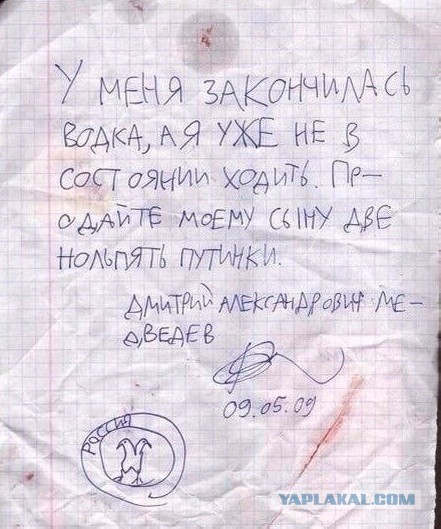 У МЕНЯ ЗАКОНЧИЛАСЬ
ВОДКА, А Я УЖЕ НЕ В
СОСТОЯНИИ ХОДИТЬ. ПР-
ОДАЙТЕ МОЕМУ СЫНУ ДВЕ
НОЛЬПЯТЬ ПУТИНКИ.
ДМИТРИЙ АЛЕКСАНДРОВИЧ МЕ-
ДВЕДЕВ
09.05.09
РОССИЯ
YAPLAKAL.COM